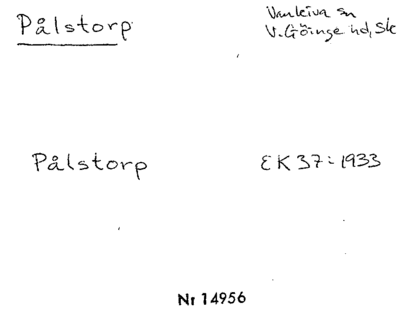 Pålstorp
Vankiva sn
V. Göinge hd, Sk
Pålstorp
EK 37:1933
Nr 14956